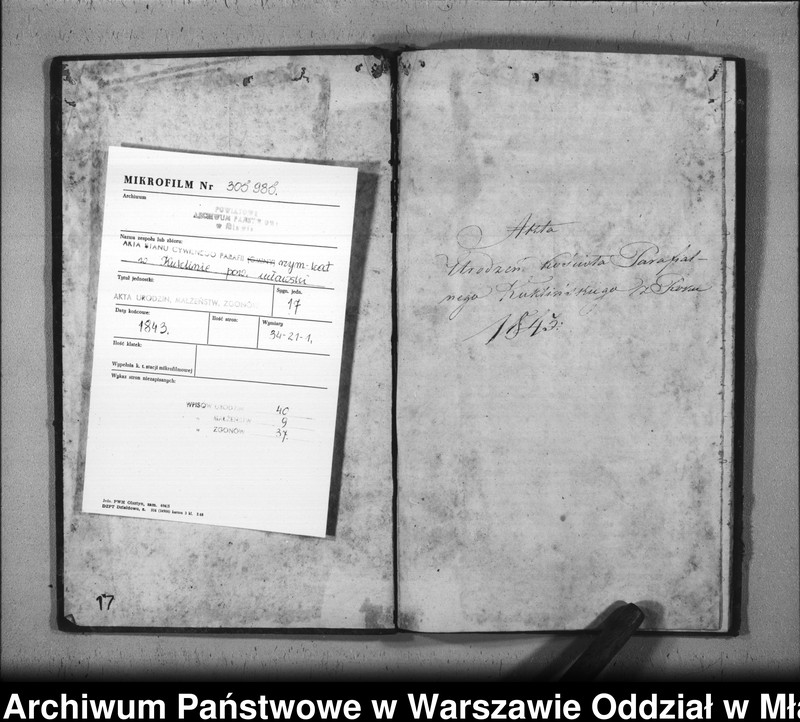 MIKROFILM Nr 305 988.
Archiwum
POWIATOWE
ARCHIWUM PAŃSTWOWE
Nazwa zespołu lub zbioru:
AKTA STANU CYWILNEGO PARAFII rzym-kat
w Kuklinie pow. mławski
Tytuł jednostki:
AKTA URODZIN, MAŁŻEŃSTW, ZGONÓW
Sygn. jedn.
17
Daty końcowe:
1843.
Ilość stron:
Wymiary
34-21-1.
Ilość klatek:
Wypełnia k. t. stacji mikrofilmowej
Wykaz stron niezapisanych:
WPISÓW URODZIN 40
" MAŁŻEŃSTW 9
" ZGONÓW 37.
17
Akta
Urodzeń kościoła Parafial-
nego Kuklińskiego z Roku
1843.
Archiwum Państwowe w Warszawie Oddział w Mł